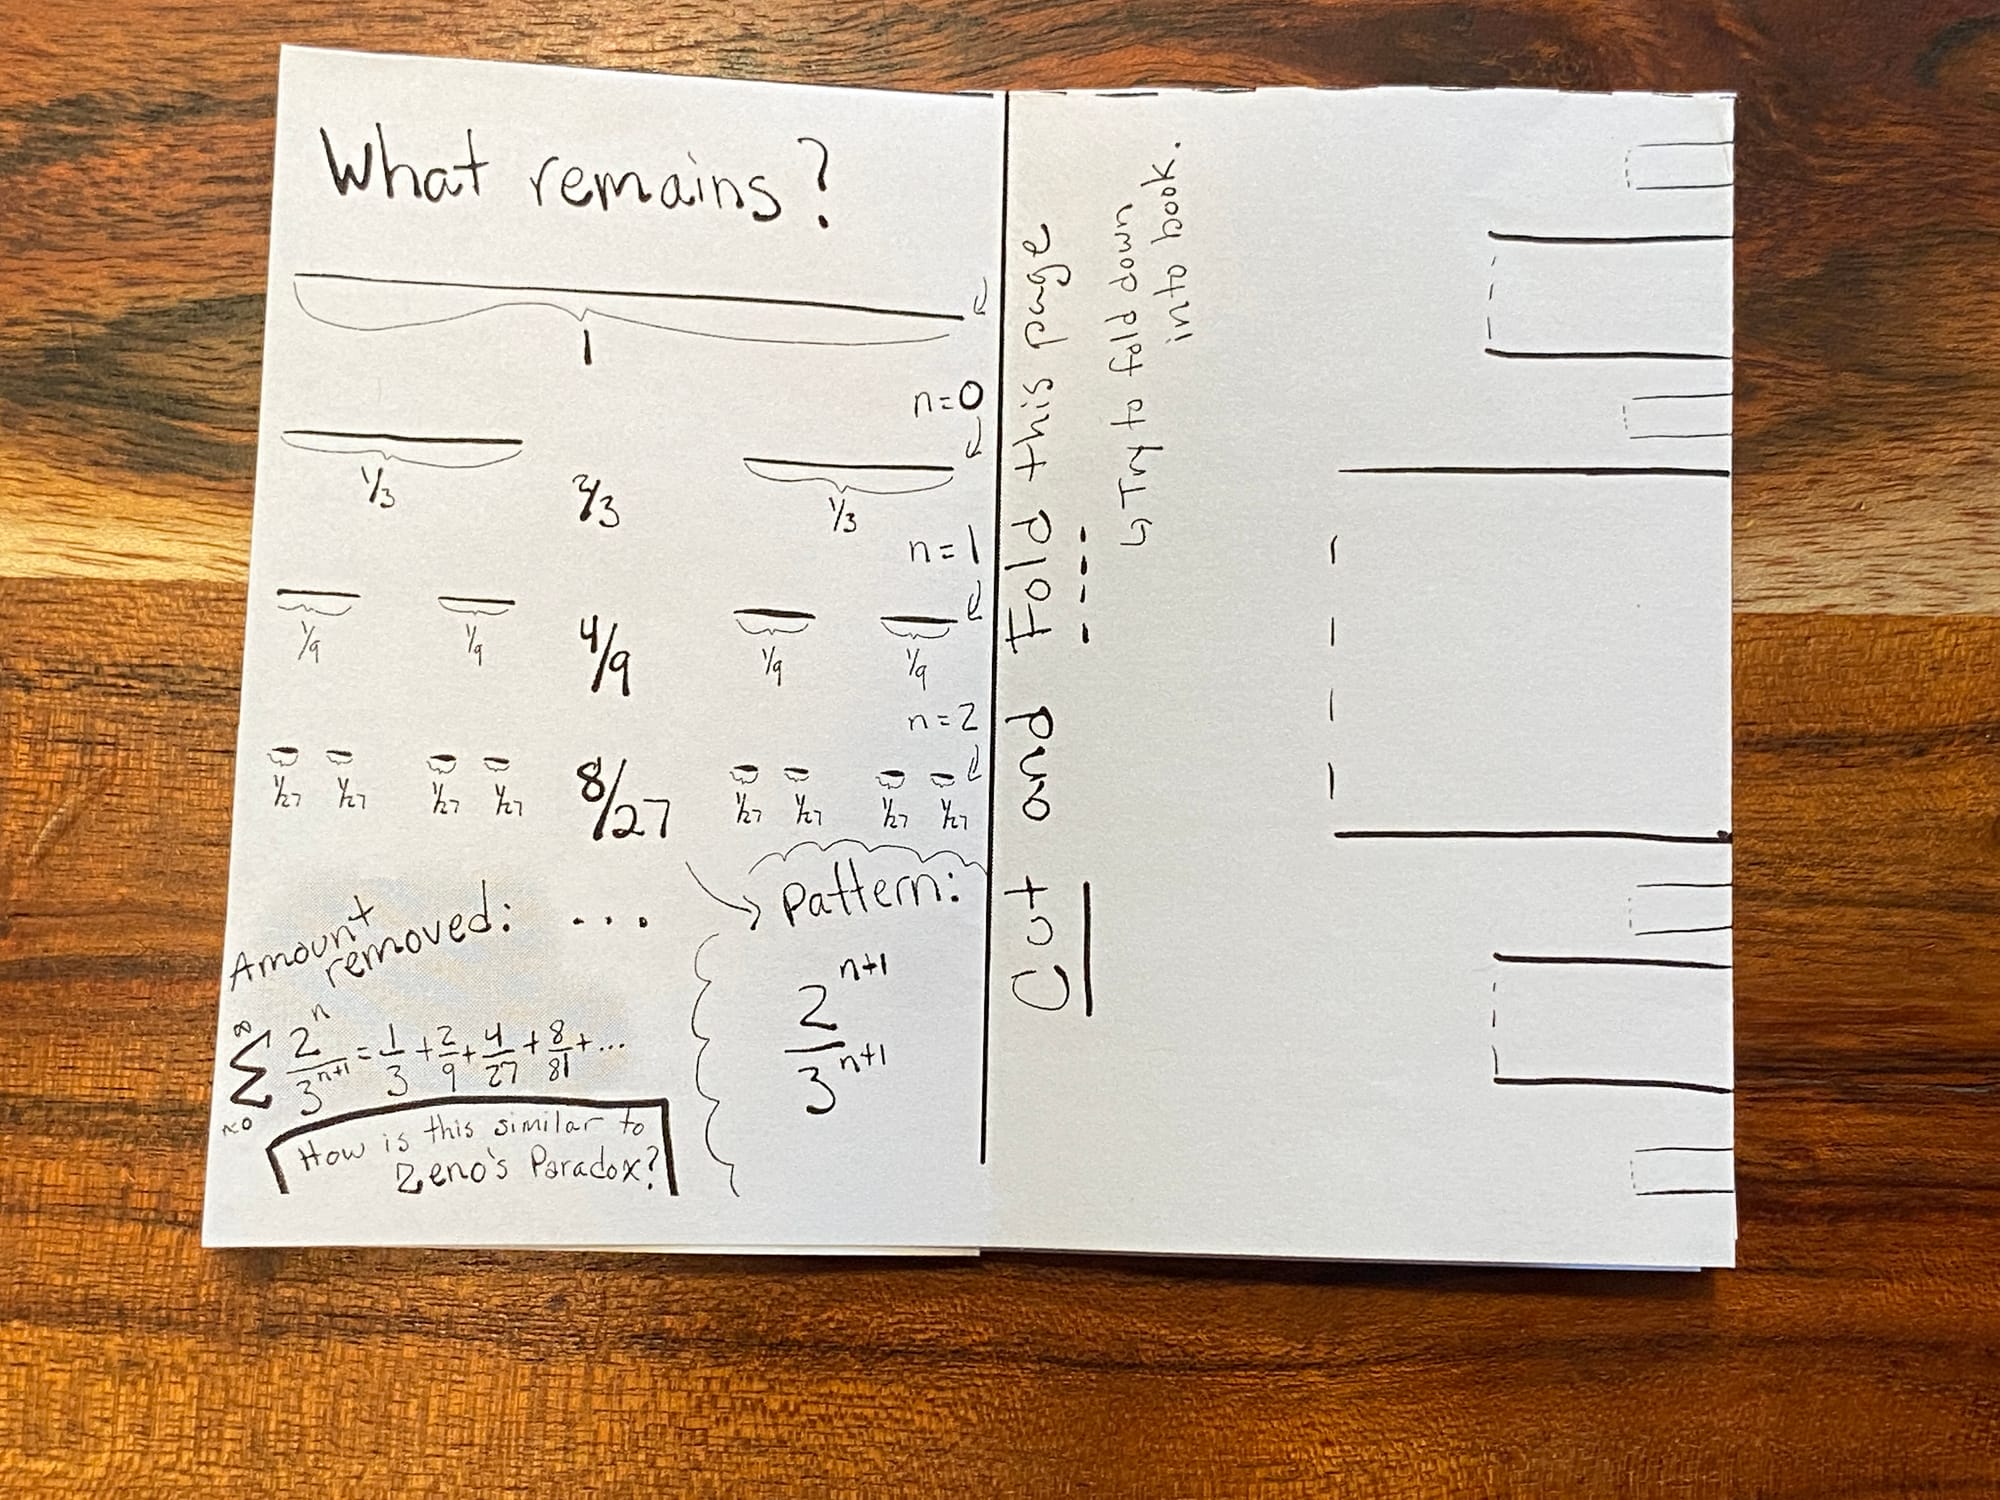 What remains?
1
n=0
1/3 2/3 1/3
n=1
1/9 1/9 4/9 1/9 1/9
n=2
1/27 1/27 1/27 1/27 8/27 1/27 1/27 1/27 1/27
Amount
removed:
...
Pattern:
2^(n+1)
3^(n+1)
∞
∑ 2^n/3^(n+1) = 1/3 + 2/9 + 4/27 + 8/81 + ...
How is this similar to
Zeno's Paradox?
Cut and Fold this page
↳ Try to fold down
into book.